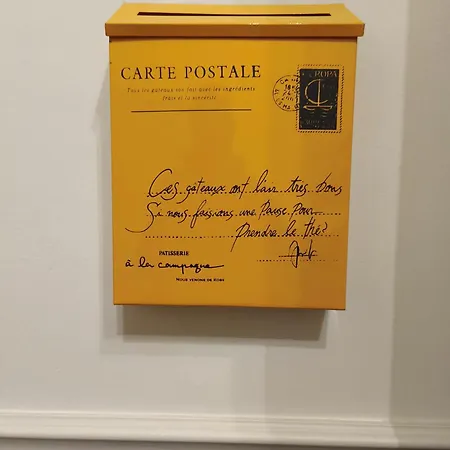 CARTE POSTALE
Tous les gateaux son fait avec les ingrédients
frais et la sincérité
EUROPA
Ces gâteaux ont l'air très bons
Si nous faisions une Pause Pour
Prendre le thé?
PATISSERIE
à la campagne
NOUS VENONS DE KOBE